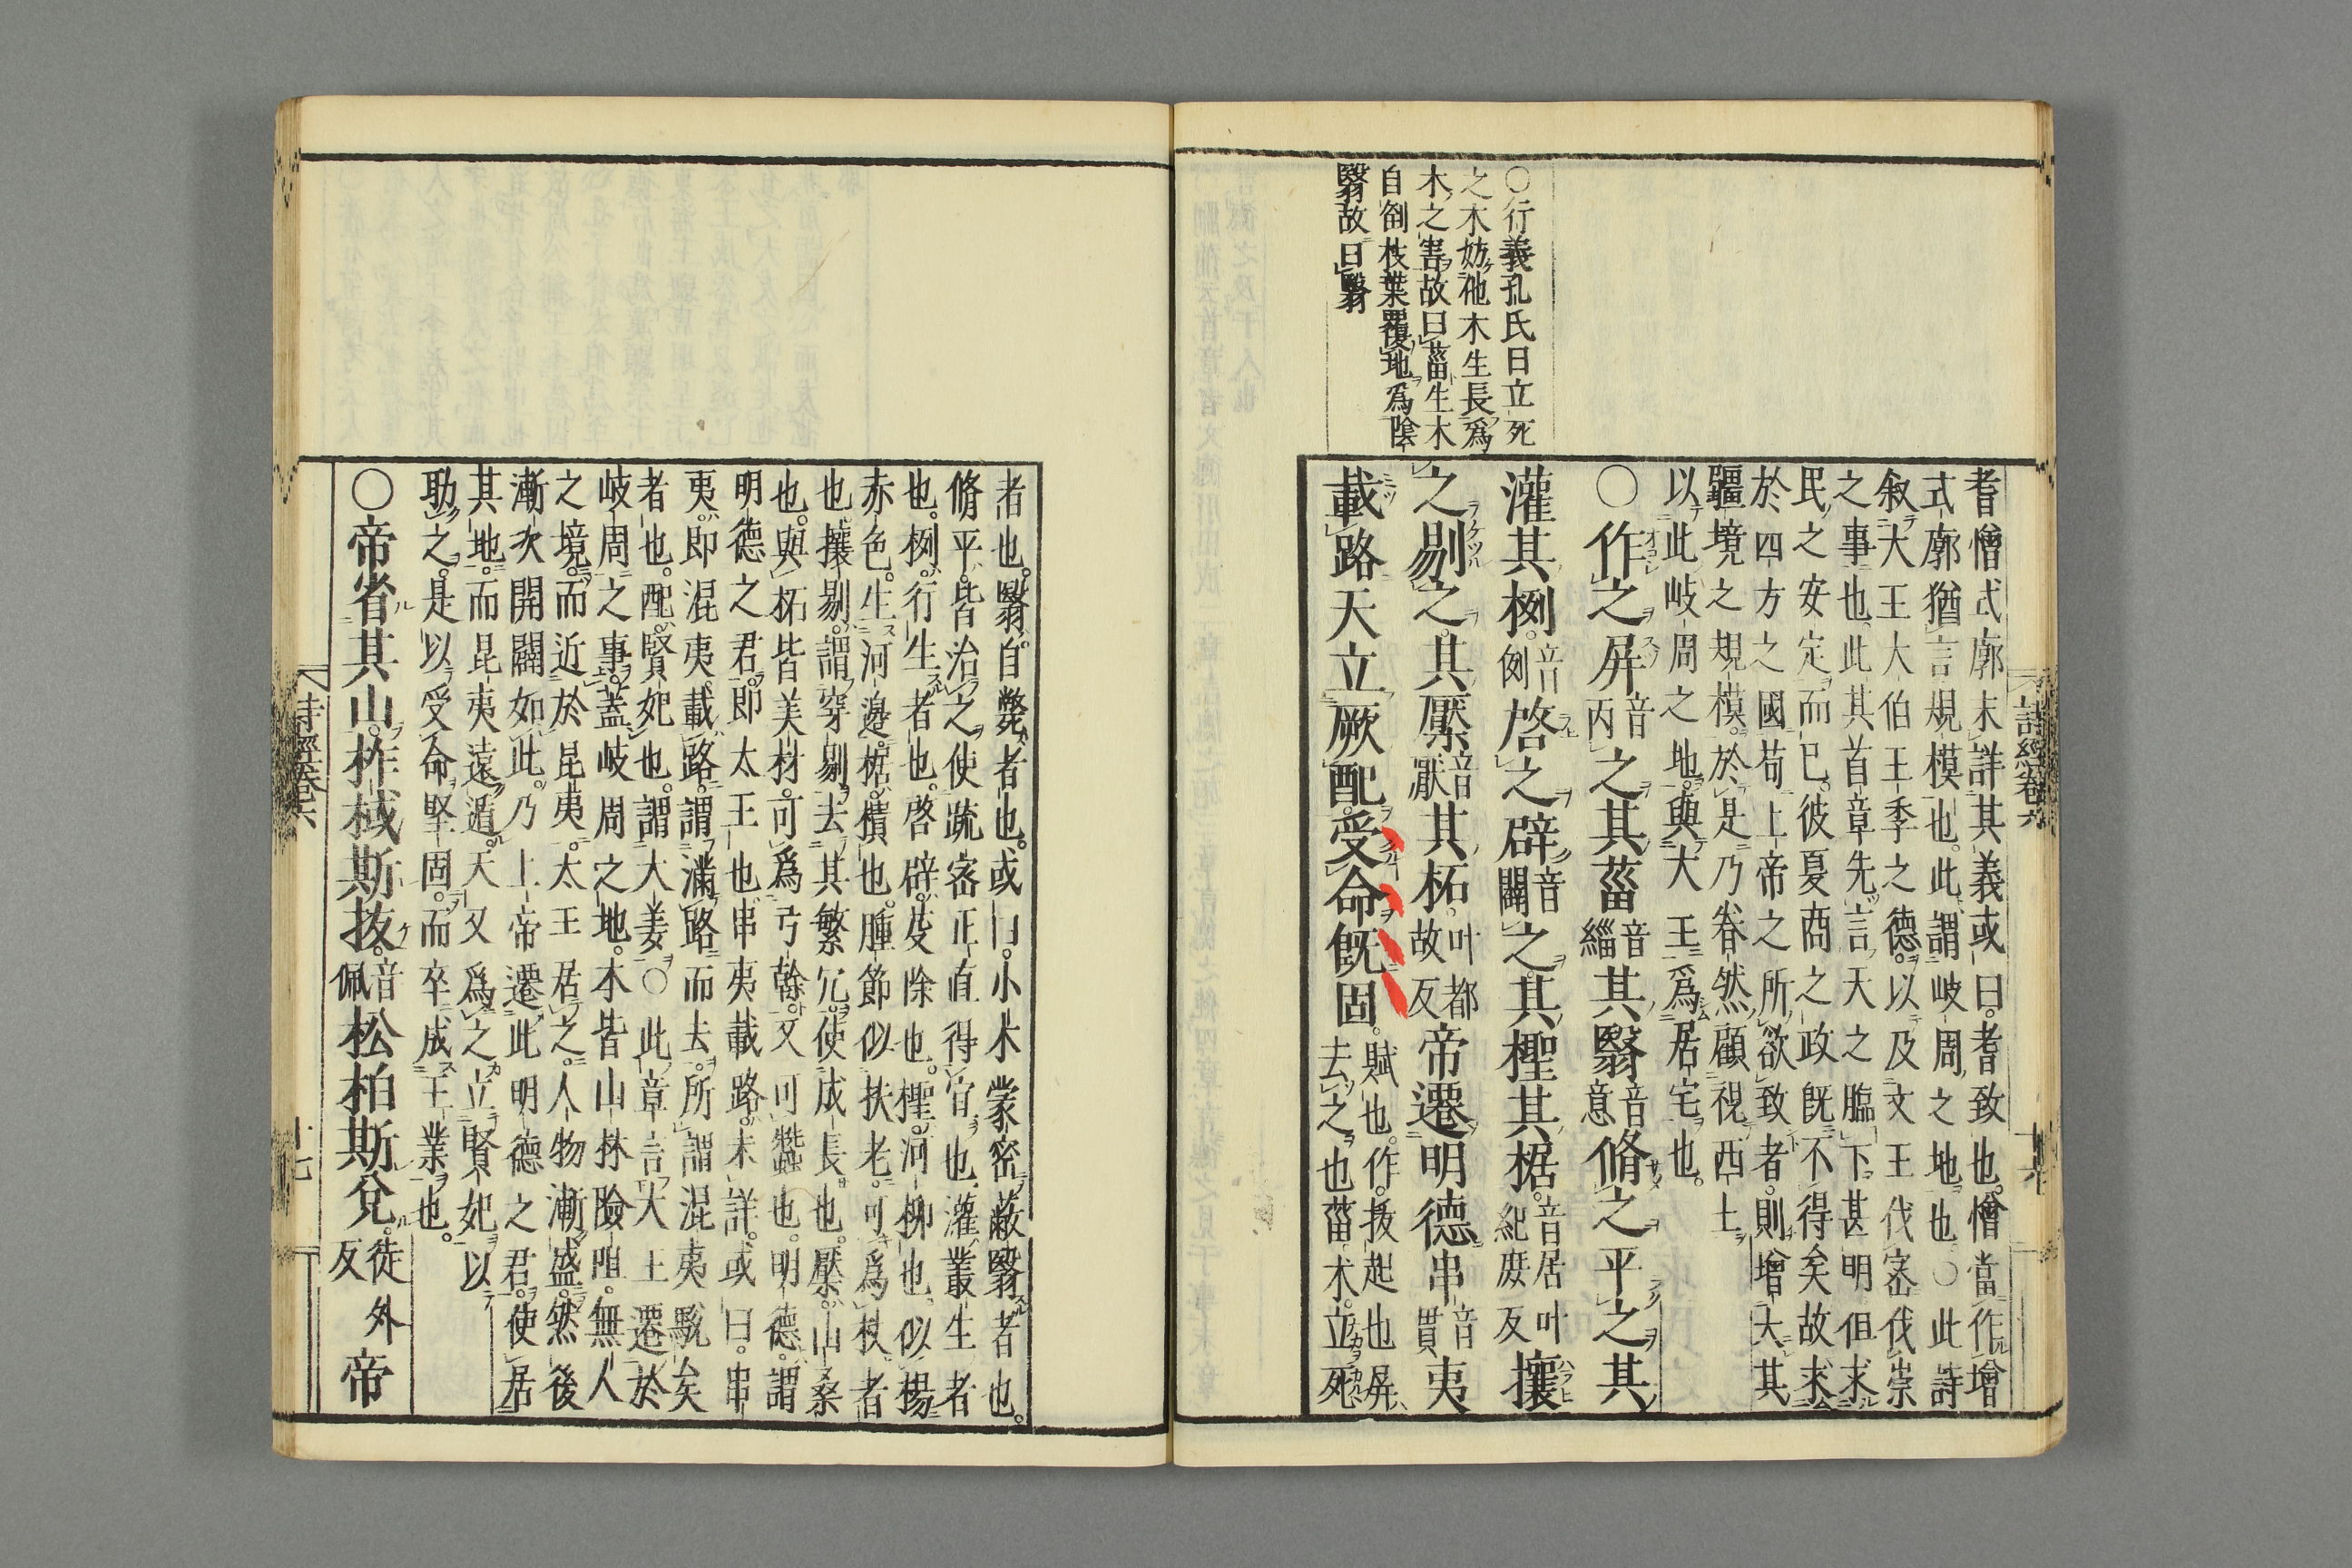 ○行義孔氏曰立死
之木妨他木生長爲
木之害故曰菑生木
自倒枝葉覆地爲陰
翳故曰翳
耆憎式廓未詳其義或曰耆致也憎當作增
式廓猶言規模也此謂岐周之地也○此詩
叙大王大伯王季之德以及文王伐密伐崇
之事也此其首章先言天之臨下甚明但求
民之安定而已彼夏商之政既不得矣故求
於四方之國苟上帝之所欲致者則增大其
疆境之規模於是乃眷然顧視西土
以此岐周之地與大王爲居宅也
○作之屏音丙之其菑音緇其翳音意脩之平之其
灌其栵音例啓之辟音闢之其檉其椐音居叶紀庶反攘
之剔之其檿音厭其柘叶都故反帝遷明德串音貫夷
載路天立厥配受命既固賦也作拔起也屏去之也菑木立死
者也翳自斃者也或曰小木蒙密蔽翳者也
脩平皆治之使疏密正直得宜也灌叢生者
也栵行生者也啓辟芟除也檉河柳也似楊
赤色生河邊椐樻也腫節似扶老可爲杖者
也攘剔謂穿剔去其繁冗使成長也檿山桑
也與柘皆美材可爲弓榦又可蠶也明德謂
明德之君即太王也串夷載路未詳或曰串
夷即混夷載路謂滿路而去所謂混夷駾矣
者也配賢妃也謂大姜○此章言大王遷於
岐周之事蓋岐周之地本皆山林險阻無人
之境而近於昆夷太王居之人物漸盛然後
漸次開闢如此乃上帝遷此明德之君使居
其地而昆夷遠遁天又爲之立賢妃以
助之是以受命堅固而卒成王業也
○帝省其山柞棫斯拔音佩松柏斯兌徒外反帝
詩經卷六
十六
詩經卷六
十七